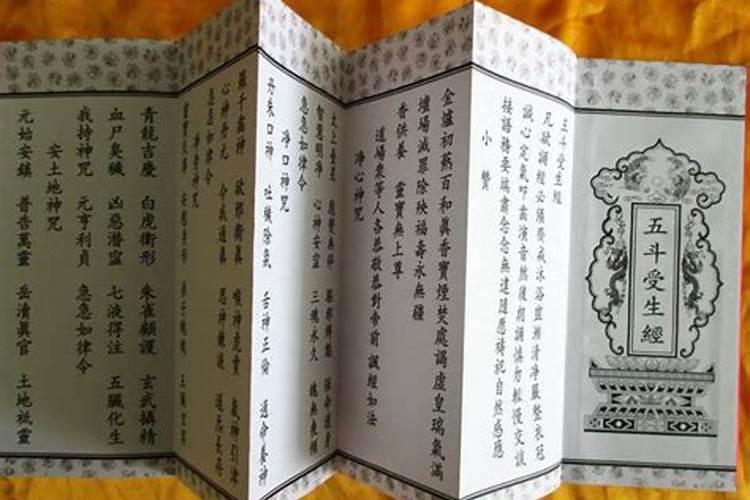 五斗受生經
五斗受生經
凡欲誦經必須齋戒沐浴並辦清淨嚴整衣冠
誠心定氣叩齒演音然後朗誦慎勿輕慢交談
接語務要端肅念念無違隨應禱祀自然感應
小贊
金爐初爇百和眞香寶煙焚處謁虛皇瑞氣滿
壇場滅罪除殃福壽永無疆
香供養 靈寶無上尊
道場衆等人各恭敬恭對帝前 誦經如法
淨心神咒
太上台星 應變無停 驅邪縛魅 保命護身
智慧明淨 心神安寧 三魂永久 魄無喪傾
急急如律令
淨口神咒
丹朱口神 吐穢除氛 舌神正倫 通命養神
羅千齒神 卻邪衛眞 喉神虎賁 炁神引津
心神丹元 令我通眞 思神鍊液 道炁長存
急急如律令
淨身神咒
靈寶天尊 安慰身形 弟子魂魄 五臟玄冥
青龍吉慶 白虎衛形 朱雀顧護 玄武攝精
血尸臭穢 凶惡潛窪 七液得注 五臟化生
我持神咒 元亨利貞 急急如律令
安土地神咒
元始安鎮 普告萬靈 岳清眞官 土地祗靈